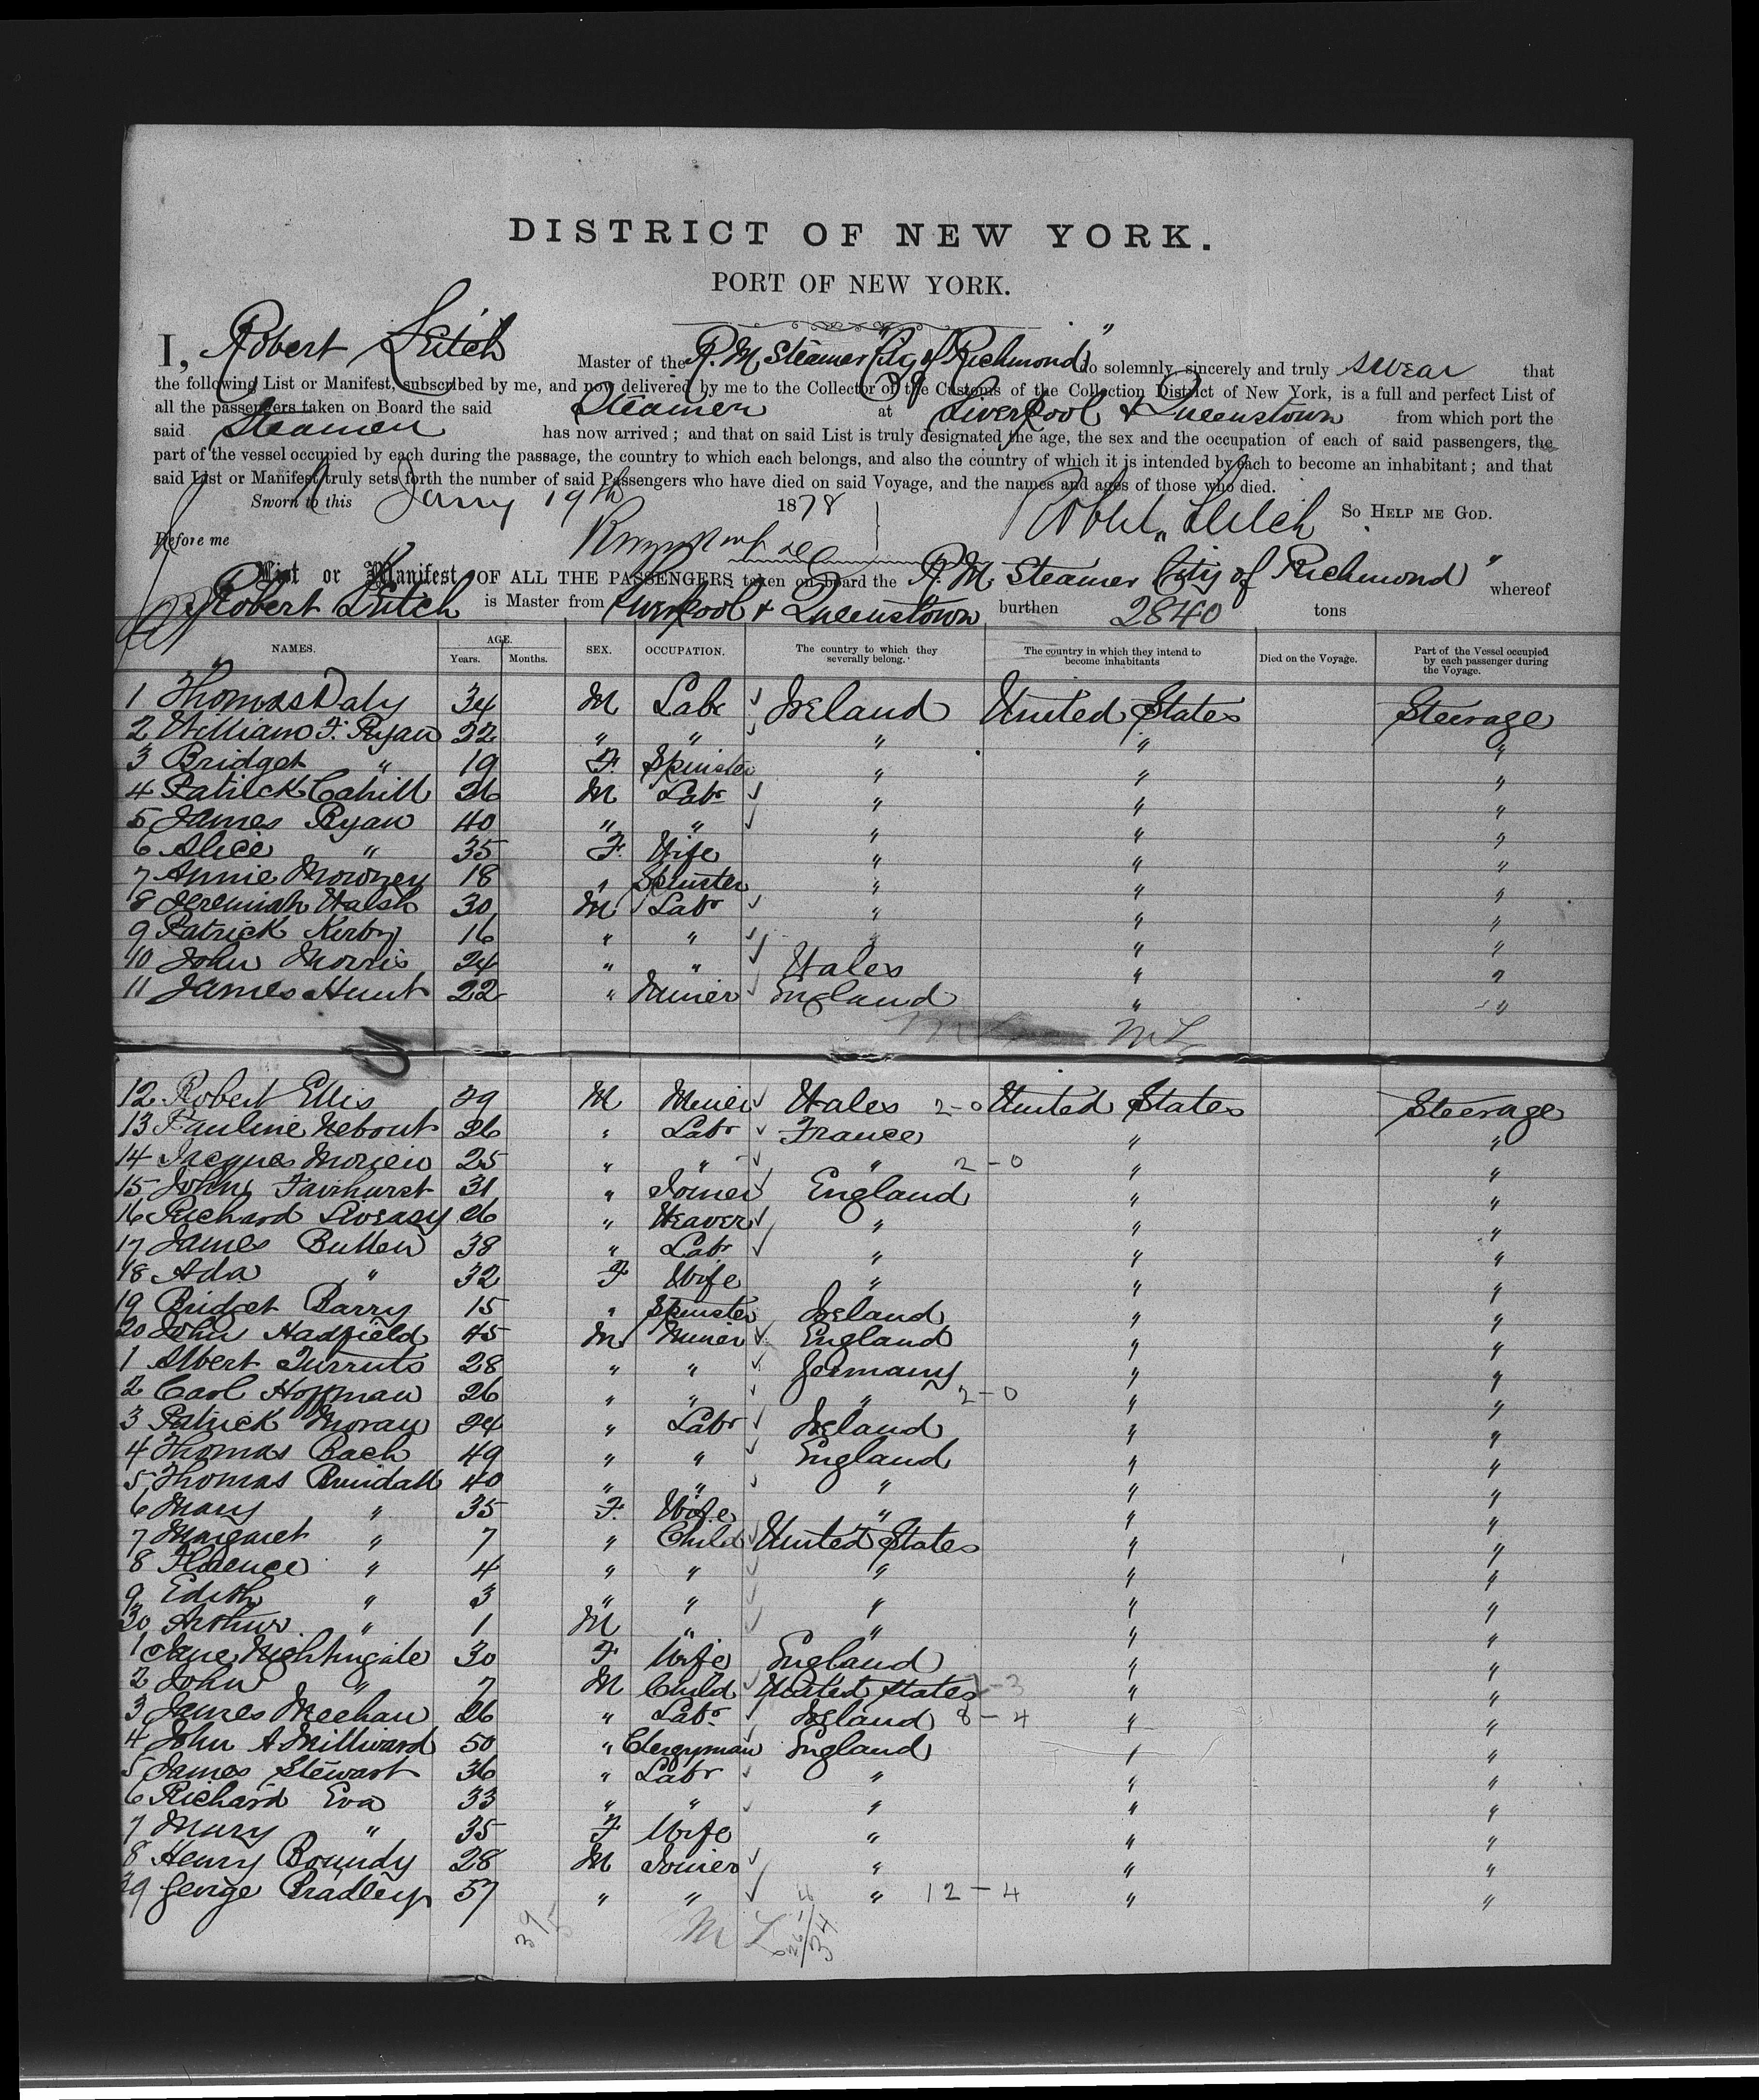 DISTRICT OF NEW YORK.
PORT OF NEW YORK.
I, Robert Leitch Master of the R. M. Steamer "City of Richmond" do solemnly, sincerely and truly swear that
the following List or Manifest, subscribed by me, and now delivered by me to the Collector of the Customs of the Collection District of New York, is a full and perfect List of
all the passengers taken on Board the said Steamer at Liverpool & Queenstown from which port the
said Steamer has now arrived; and that on said List is truly designated the age, the sex and the occupation of each of said passengers, the
part of the vessel occupied by each during the passage, the country to which each belongs, and also the country of which it is intended by each to become an inhabitant; and that
said List or Manifest truly sets forth the number of said Passengers who have died on said Voyage, and the names and ages of those who died.
Sworn to this Jany 19th 1878 Robert Leitch SO HELP ME GOD.
Before me
List or Manifest OF ALL THE PASSENGERS taken on board the R. M. Steamer City of Richmond" whereof
Robert Leitch is Master from Liverpool & Queenstown burthen 2840 tons
NAMES. AGE. Years. Months. SEX. OCCUPATION. The country to which they severally belong. The country in which they intend to become inhabitants Died on the Voyage. Part of the Vessel occupied by each passenger during the Voyage.
1 Thomas Daly 34 M Labr Ireland United States Steerage
2 William F. Ryan 22 " " " " "
3 Bridget " 19 F. Spinster " " "
4 Patrick Cahill 26 M Labr " " "
5 James Ryan 40 " " " " "
6 Alice " 35 F. Wife " " "
7 Annie Mowney 18 " Spinster " " "
8 Jeremiah Walsh 30 M Labr " " "
9 Patrick Kirby 16 " " " " "
10 John Morris 24 " " Wales " "
11 James Hunt 22 " Miner England " "
ML
12 Robert Ellis 29 M Miner Wales 2-0 United States Steerage
13 Pauline Nebout 26 " Labr France " "
14 Jacques 25 " " " 2-0 " "
15 John Fairhurst 31 " Joiner England " "
16 Richard Livesay 26 " Weaver " " "
17 James Butten 38 " Labr " " "
18 Ada " 32 F Wife " " "
19 Bridget Barry 15 " Spinster Ireland " "
20 John Hadfield 45 M Miner England " "
1 Albert 28 " " Germany " "
2 Carl Hoffman 26 " " " 2-0 " "
3 Patrick Moran 24 " Labr Ireland " "
4 Thomas Bach 49 " " England " "
5 Thomas Brindall 40 " " " " "
6 Mary " 35 F. Wife " " "
7 Margaret " 7 " Child United States " "
8 Florence " 4 " " " " "
9 Edith " 3 " " " " "
30 Arthur " 1 M " " " "
1 Jane Nightingale 30 F Wife England " "
2 John " 7 M Child United States " "
3 James Meehan 26 " Labr Ireland 8-4 " "
4 John A Milliward 50 " Clergyman England " "
5 James Stewart 36 " Labr " " "
6 Richard Eva 33 " " " " "
7 Mary " 35 F Wife " " "
8 Henry Boundy 28 M Joiner " " "
39 George Bradley 57 " " " 12-4 " "
39
5
ML
34